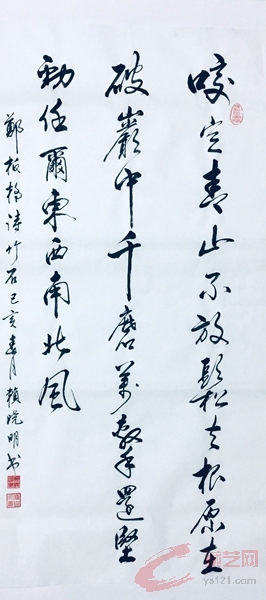 咬定青山不放鬆立根原在
破巖中千磨萬擊還堅
勁任爾東西南北風
鄭板橋詩竹石己亥春月賴晓明书
艺网
ys121.com